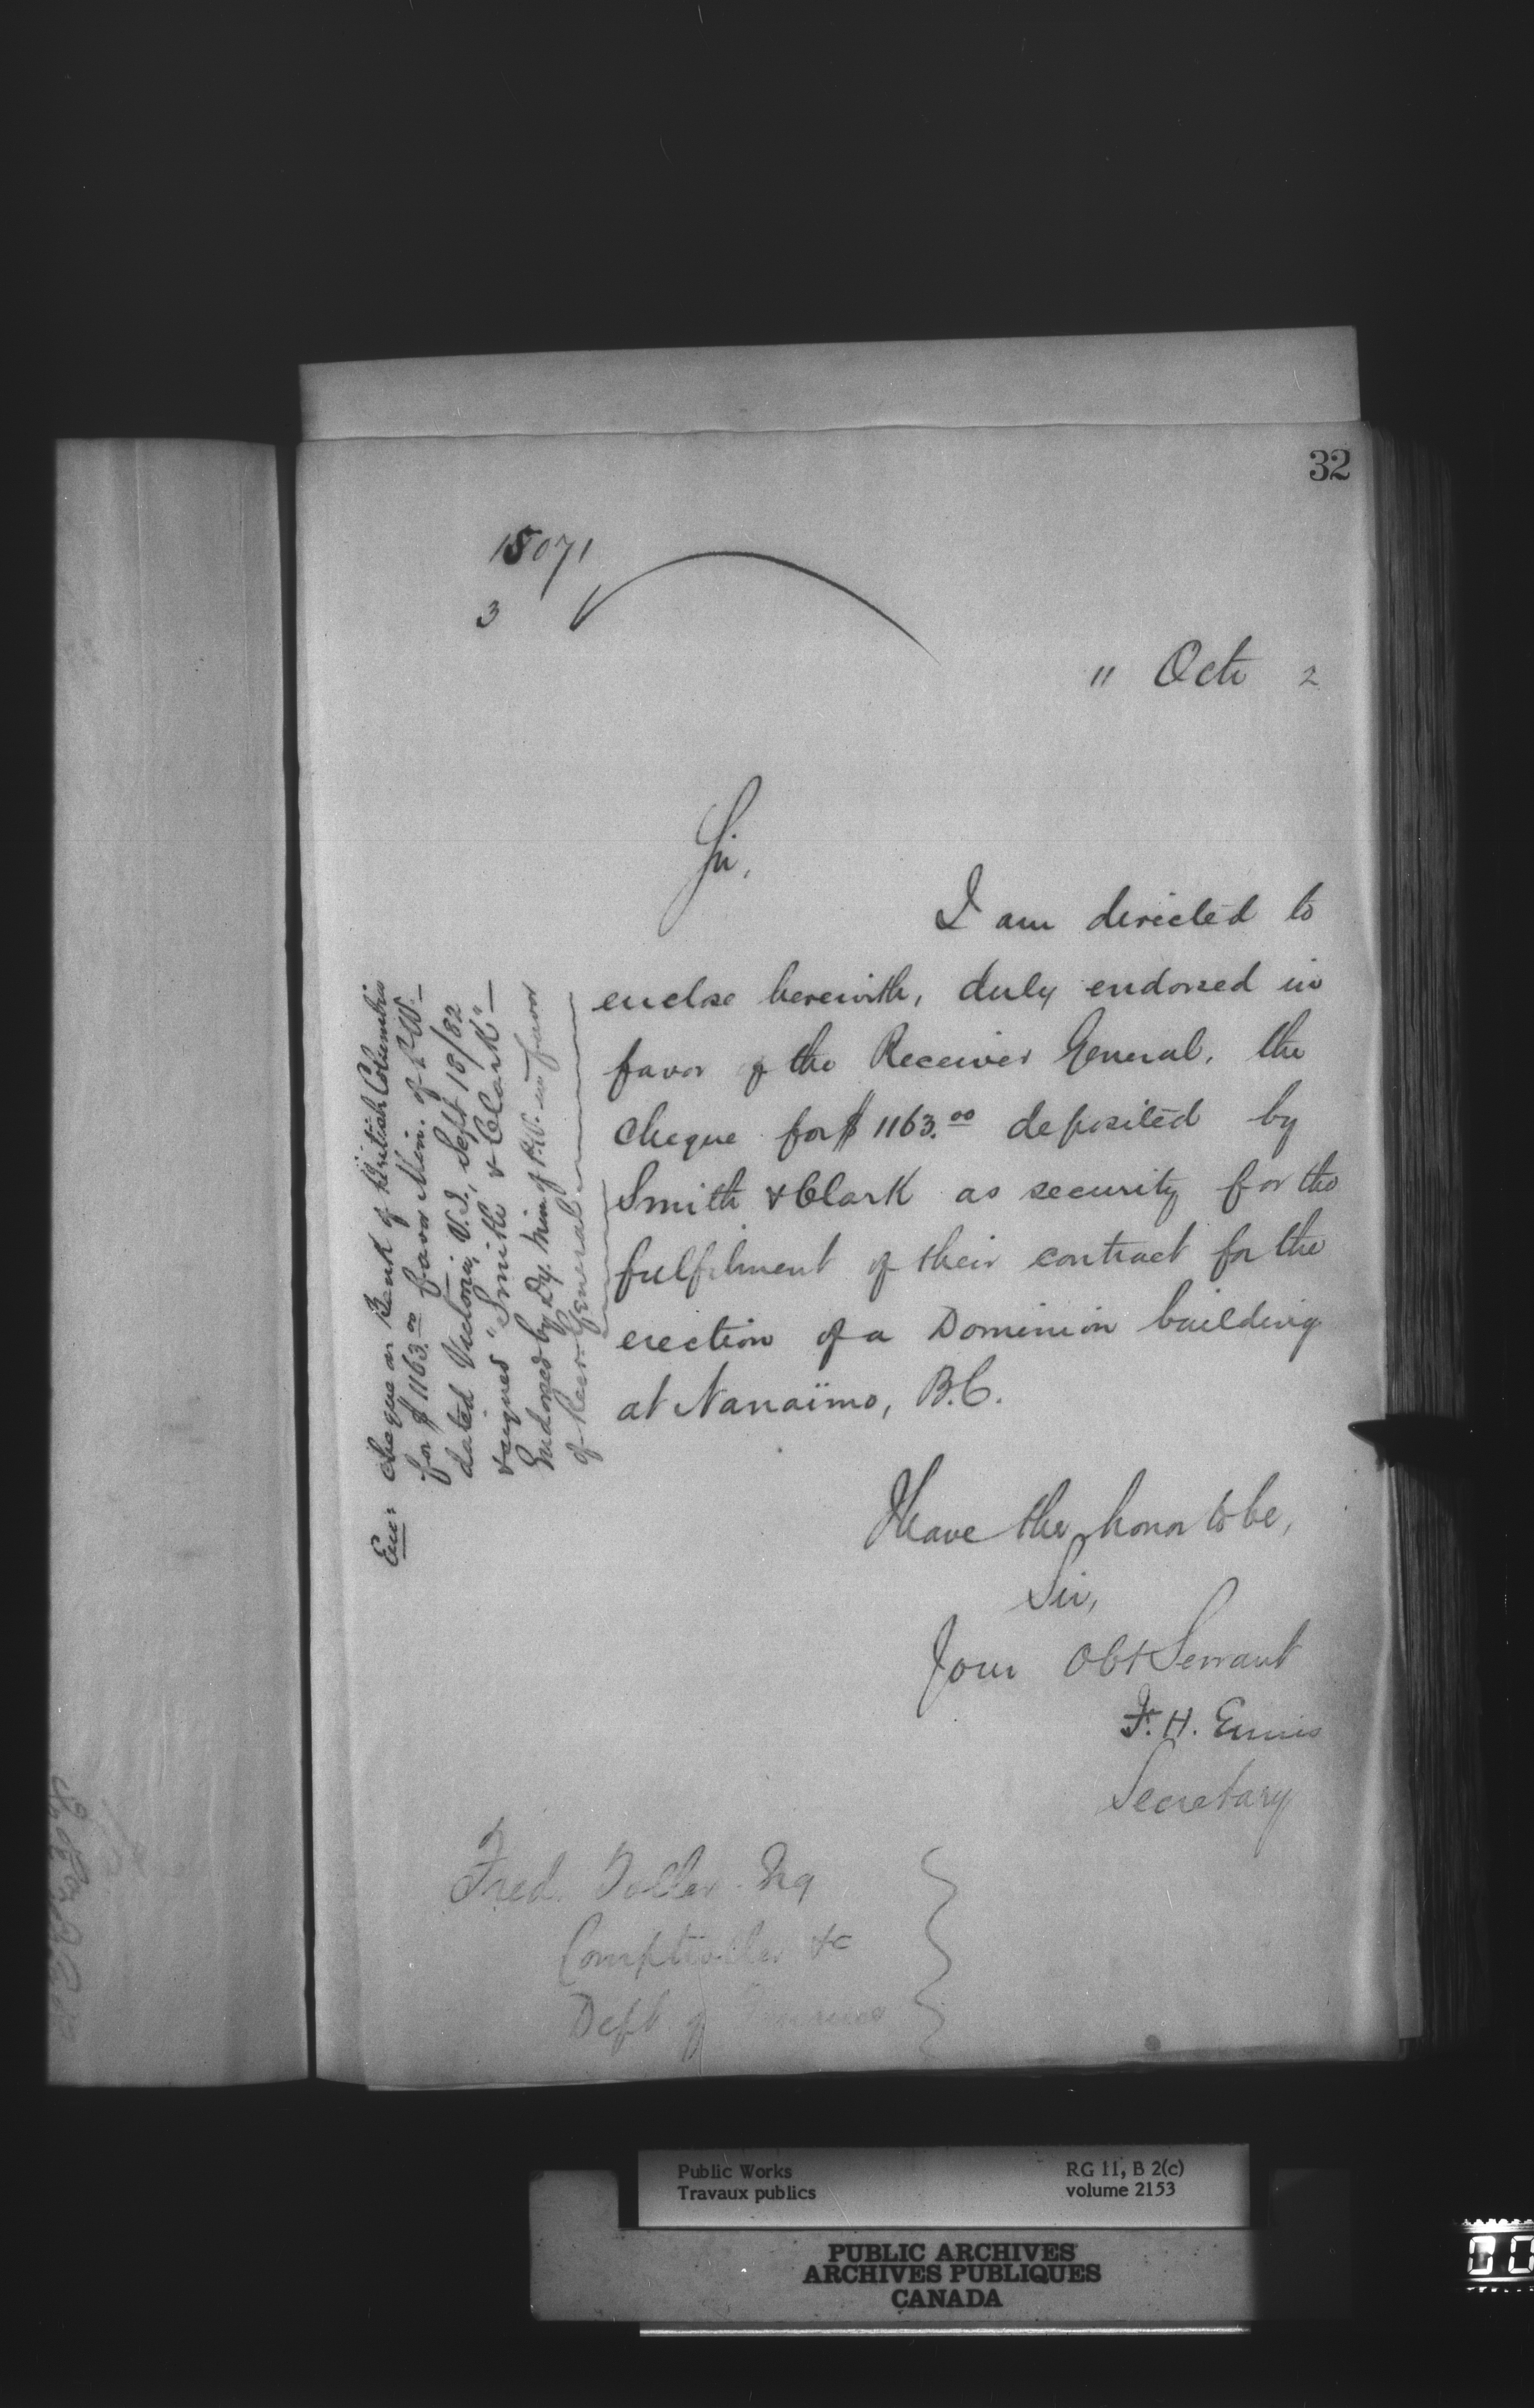 32
15071
3
11 Octr 2
Sir,
I am directed to
enclose herewith, duly endorsed in
favor of the Receiver General, the
cheque for $1163.00 deposited by
Smith & Clark as security for the
fulfilment of their contract for the
erection of a Dominion building
at Nanaïmo, B.C.
I have the honor to be,
Sir,
Your Obt Servant
F. H. Ennis
Secretary
Fred. Toller Esq
Comptroller &c
Dept of Finance
Enc: cheque on Bank of British Columbia
for $1163.00 favor Min. of P.W.—
dated Victoria, V.I., Sept 18/82
& signed "Smith & Clark"—
Endorsed by Dy. Min of P.W. in favor
of Recr General
Public Works
Travaux publics
RG 11, B 2(c)
volume 2153
PUBLIC ARCHIVES
ARCHIVES PUBLIQUES
CANADA